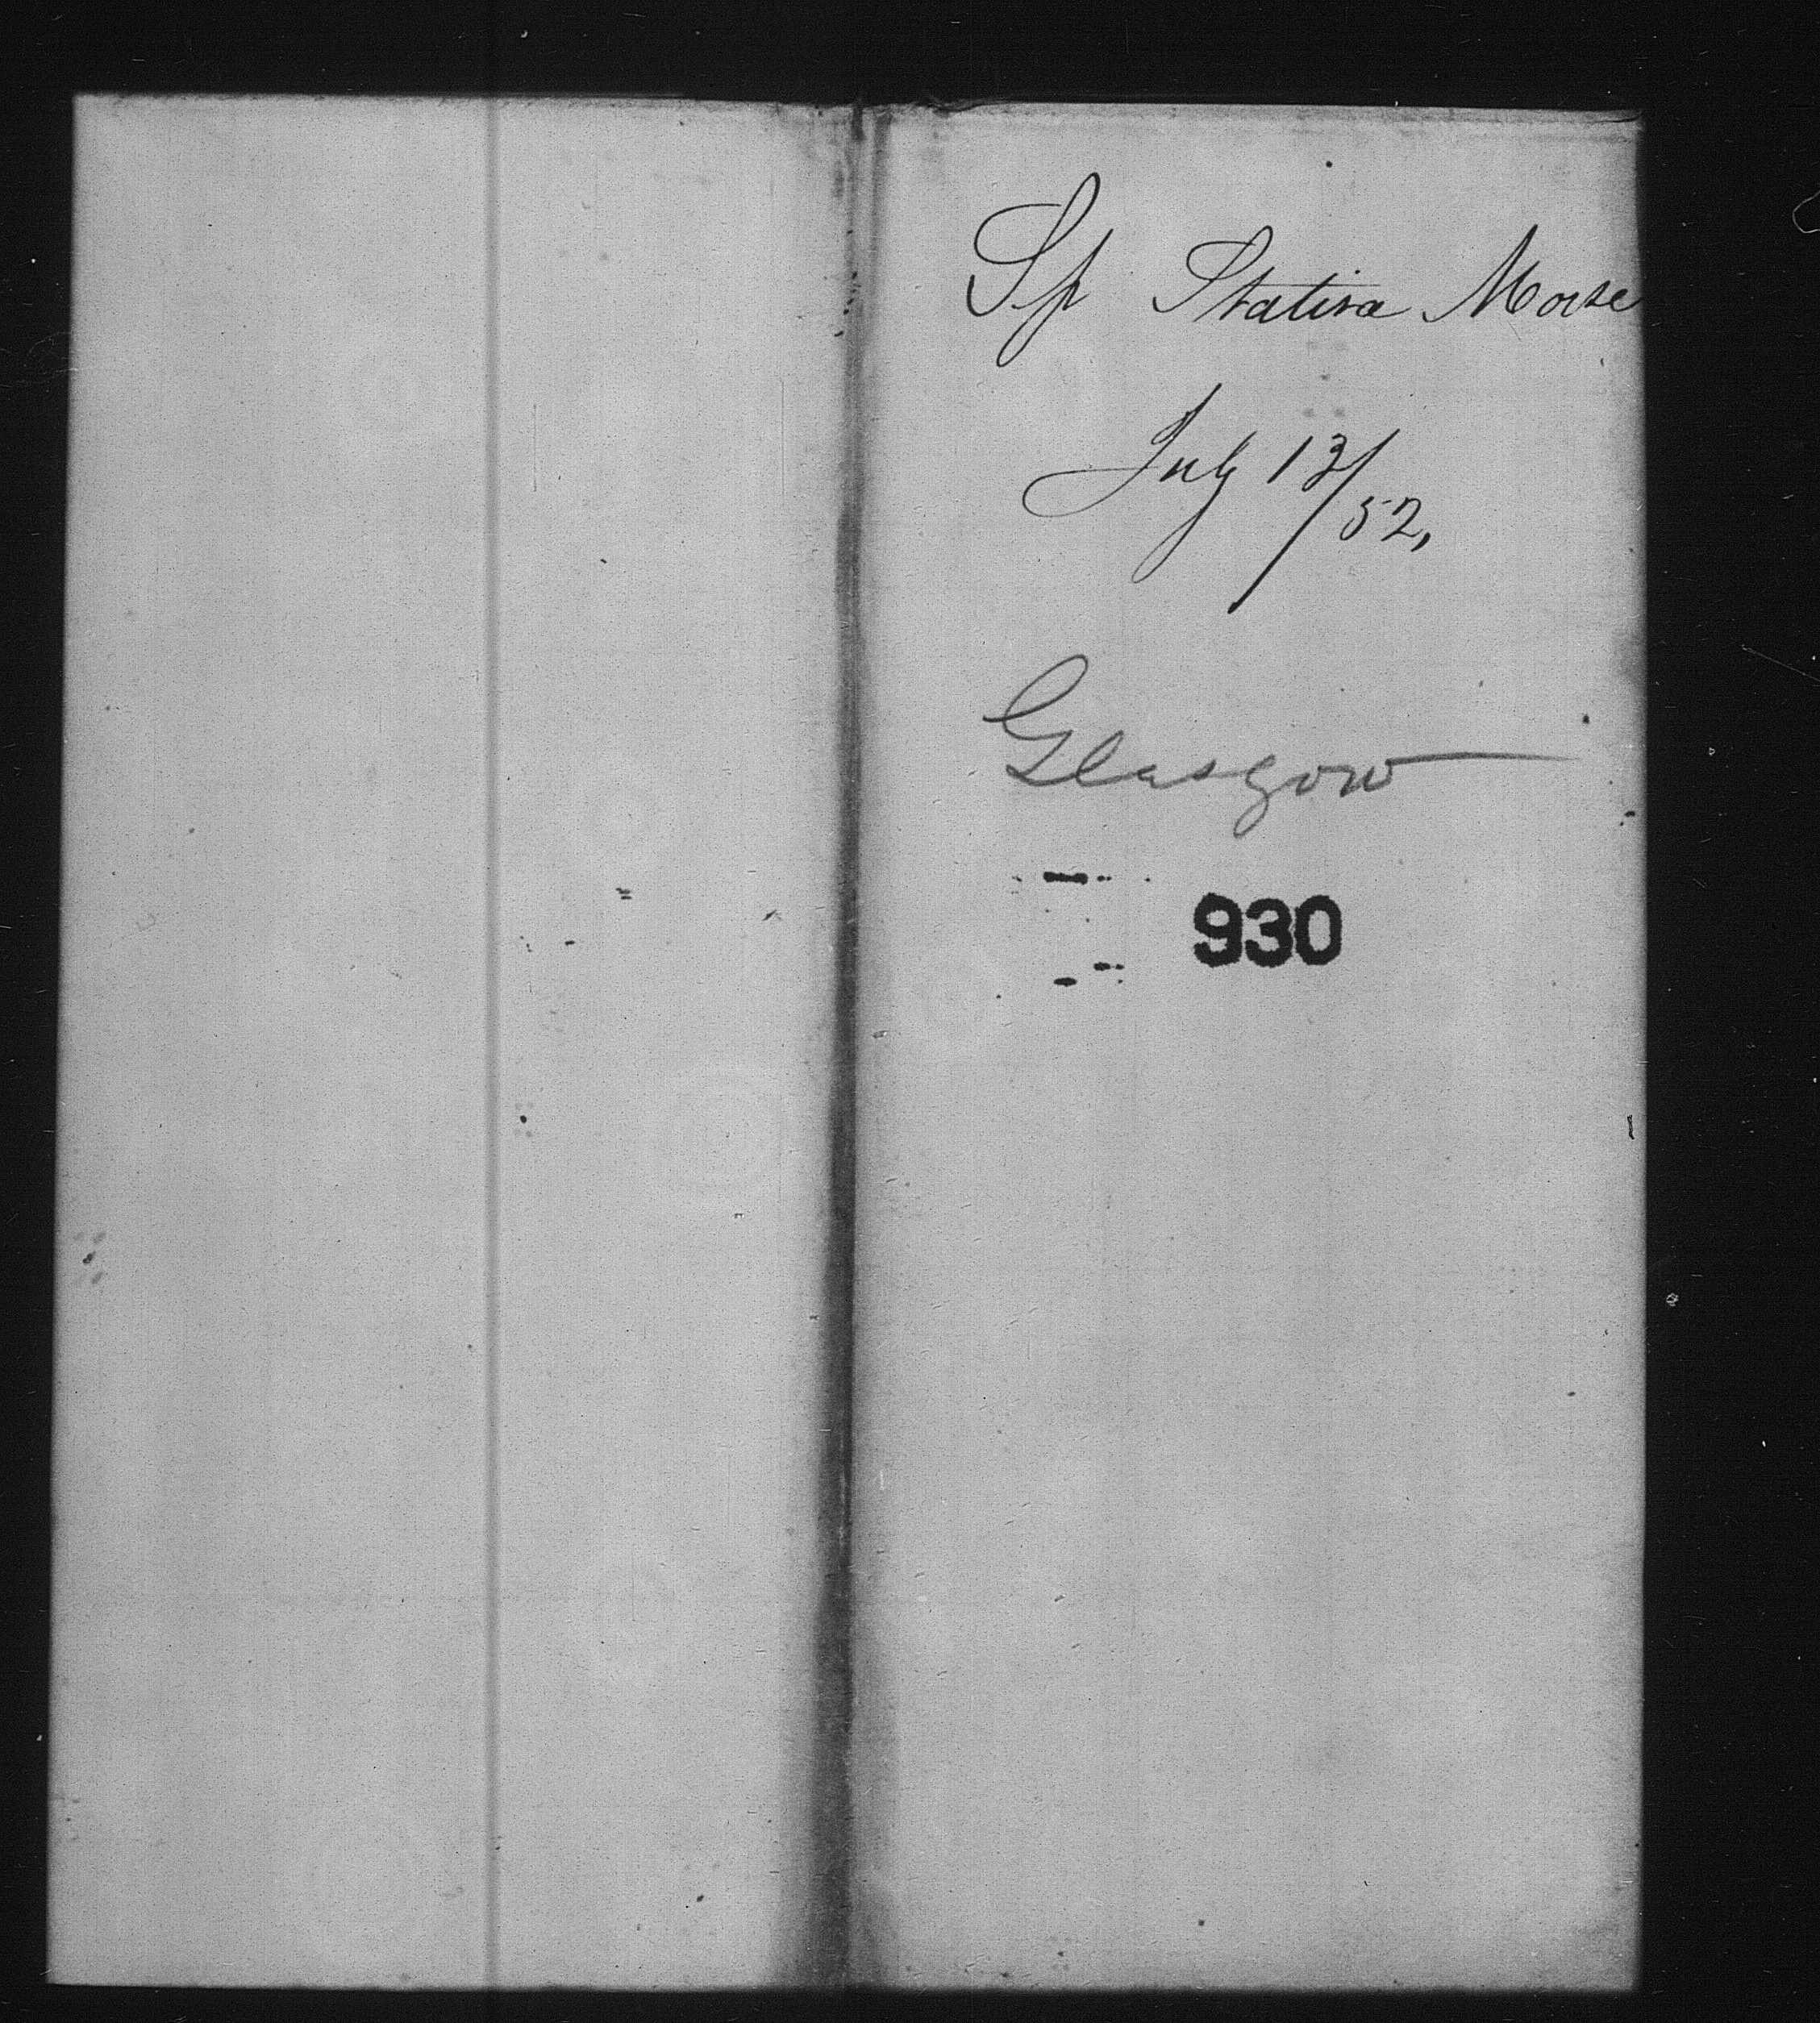 Sp Statira Morse
July 13/52,
Glasgow
930